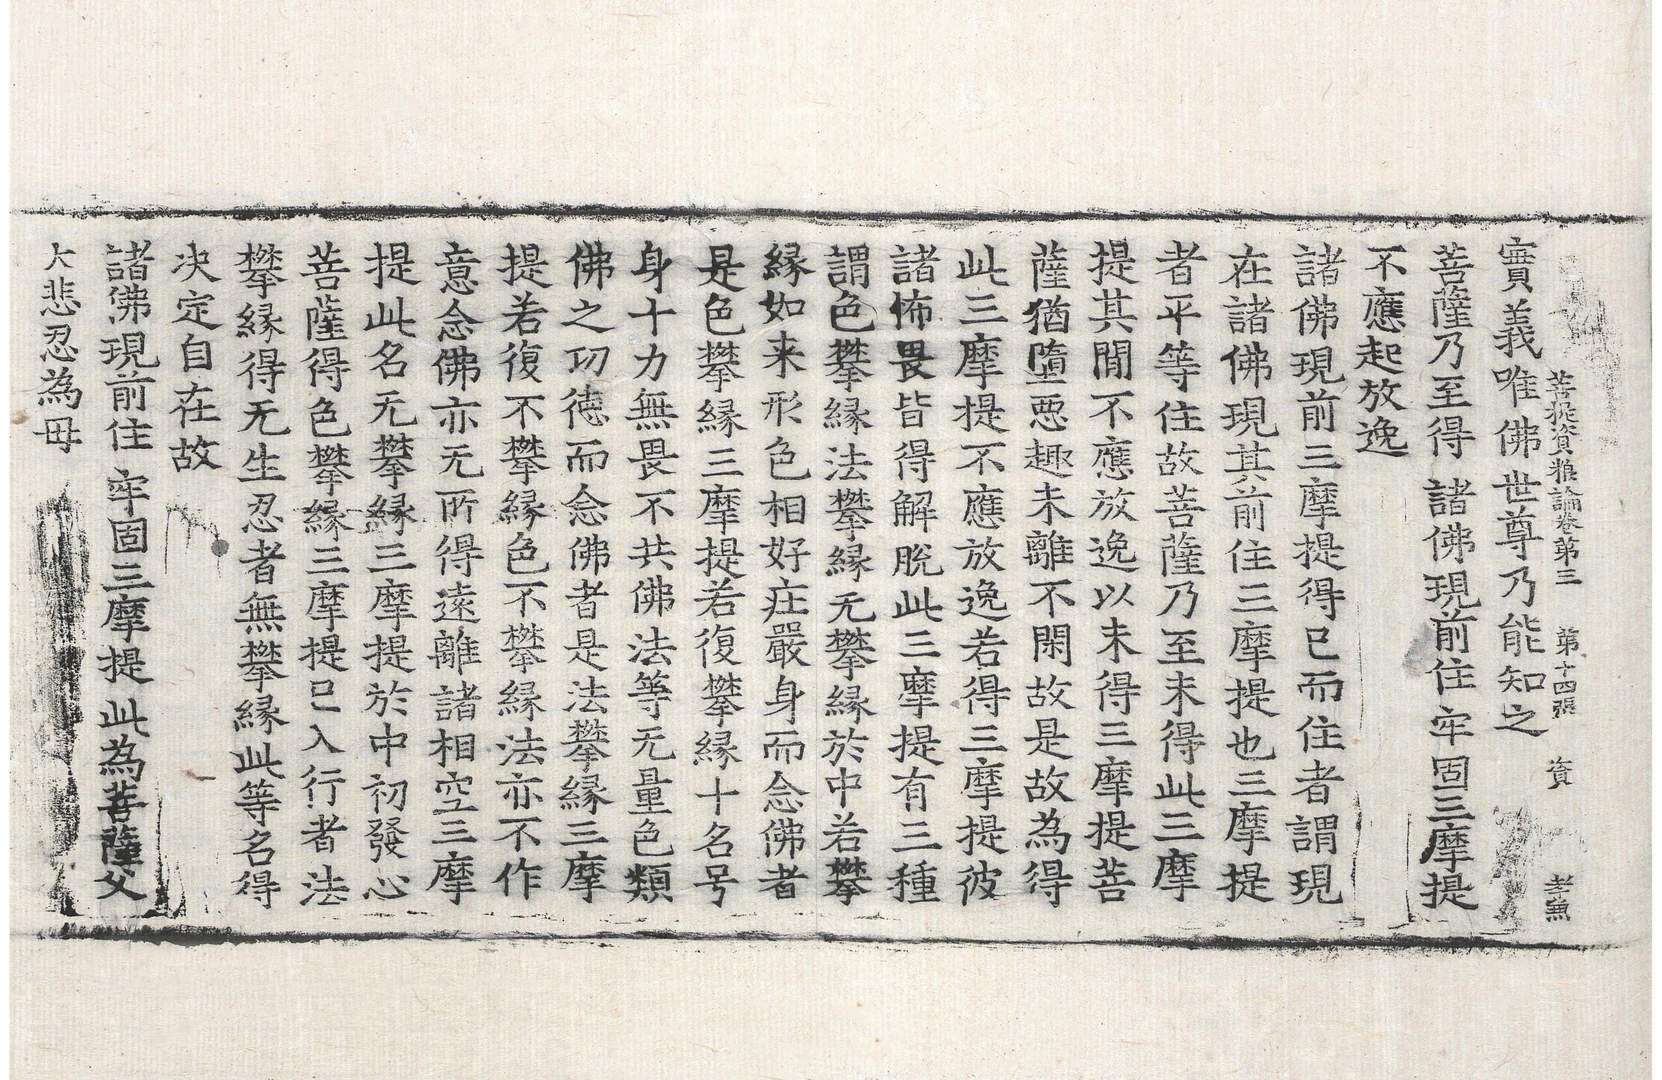 菩提資粮論卷第三 第十四張 資 孝兼
實義唯佛世尊乃能知之
菩薩乃至得 諸佛現前住 牢固三摩提
不應起放逸
諸佛現前三摩提得已而住者謂現
在諸佛現其前住三摩提也三摩提
者平等住故菩薩乃至未得此三摩
提其間不應放逸以未得三摩提菩
薩猶墮惡趣未離不閑故是故為得
此三摩提不應放逸若得三摩提彼
諸怖畏皆得解脫此三摩提有三種
謂色攀緣法攀緣无攀緣於中若攀
緣如来形色相好庄嚴身而念佛者
是色攀緣三摩提若復攀緣十名号
身十力無畏不共佛法等无量色類
佛之功德而念佛者是法攀緣三摩
提若復不攀緣色不攀緣法亦不作
意念佛亦无所得遠離諸相空三摩
提此名无攀緣三摩提於中初發心
菩薩得色攀緣三摩提已入行者法
攀緣得无生忍者無攀緣此等名得
决定自在故
諸佛現前住 牢固三摩提 此為菩薩父
大悲忍為母